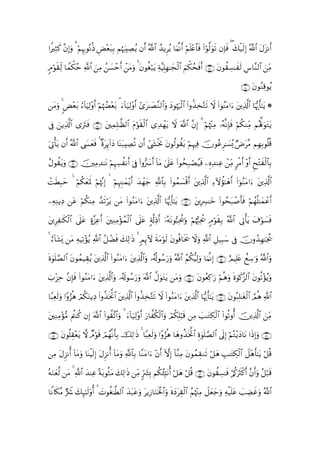 أَنزَلَ ٱللَّهُ إِلَيْكَ ۖ فَإِن تَوَلَّوْا۟ فَٱعْلَمْ أَنَّمَا يُرِيدُ ٱللَّهُ أَن يُصِيبَهُم بِبَعْضِ ذُنُوبِهِمْ ۗ وَإِنَّ كَثِيرًا
مِّنَ ٱلنَّاسِ لَفَٰسِقُونَ ﴿٤٩﴾ أَفَحُكْمَ ٱلْجَٰهِلِيَّةِ يَبْغُونَ ۚ وَمَنْ أَحْسَنُ مِنَ ٱللَّهِ حُكْمًا لِّقَوْمٍ
يُوقِنُونَ ﴿٥٠﴾
* يَٰٓأَيُّهَا ٱلَّذِينَ ءَامَنُوا۟ لَا تَتَّخِذُوا۟ ٱلْيَهُودَ وَٱلنَّصَٰرَىٰٓ أَوْلِيَآءَ ۘ بَعْضُهُمْ أَوْلِيَآءُ بَعْضٍ ۚ وَمَن
يَتَوَلَّهُم مِّنكُمْ فَإِنَّهُۥ مِنْهُمْ ۗ إِنَّ ٱللَّهَ لَا يَهْدِى ٱلْقَوْمَ ٱلظَّٰلِمِينَ ﴿٥١﴾ فَتَرَى ٱلَّذِينَ فِى
قُلُوبِهِم مَّرَضٌ يُسَٰرِعُونَ فِيهِمْ يَقُولُونَ نَخْشَىٰٓ أَن تُصِيبَنَا دَآئِرَةٌ ۚ فَعَسَى ٱللَّهُ أَن يَأْتِىَ
بِٱلْفَتْحِ أَوْ أَمْرٍ مِّنْ عِندِهِۦ فَيُصْبِحُوا۟ عَلَىٰ مَآ أَسَرُّوا۟ فِىٓ أَنفُسِهِمْ نَٰدِمِينَ ﴿٥٢﴾ وَيَقُولُ
ٱلَّذِينَ ءَامَنُوٓا۟ أَهَٰٓؤُلَآءِ ٱلَّذِينَ أَقْسَمُوا۟ بِٱللَّهِ جَهْدَ أَيْمَٰنِهِمْ ۙ إِنَّهُمْ لَمَعَكُمْ ۚ حَبِطَتْ
أَعْمَٰلُهُمْ فَأَصْبَحُوا۟ خَٰسِرِينَ ﴿٥٣﴾ يَٰٓأَيُّهَا ٱلَّذِينَ ءَامَنُوا۟ مَن يَرْتَدَّ مِنكُمْ عَن دِينِهِۦ
فَسَوْفَ يَأْتِى ٱللَّهُ بِقَوْمٍ يُحِبُّهُمْ وَيُحِبُّونَهُۥٓ أَذِلَّةٍ عَلَى ٱلْمُؤْمِنِينَ أَعِزَّةٍ عَلَى ٱلْكَٰفِرِينَ
يُجَٰهِدُونَ فِى سَبِيلِ ٱللَّهِ وَلَا يَخَافُونَ لَوْمَةَ لَآئِمٍ ۚ ذَٰلِكَ فَضْلُ ٱللَّهِ يُؤْتِيهِ مَن يَشَآءُ ۚ
وَٱللَّهُ وَٰسِعٌ عَلِيمٌ ﴿٥٤﴾ إِنَّمَا وَلِيُّكُمُ ٱللَّهُ وَرَسُولُهُۥ وَٱلَّذِينَ ءَامَنُوا۟ ٱلَّذِينَ يُقِيمُونَ ٱلصَّلَوٰةَ
وَيُؤْتُونَ ٱلزَّكَوٰةَ وَهُمْ رَٰكِعُونَ ﴿٥٥﴾ وَمَن يَتَوَلَّ ٱللَّهَ وَرَسُولَهُۥ وَٱلَّذِينَ ءَامَنُوا۟ فَإِنَّ حِزْبَ
ٱللَّهِ هُمُ ٱلْغَٰلِبُونَ ﴿٥٦﴾ يَٰٓأَيُّهَا ٱلَّذِينَ ءَامَنُوا۟ لَا تَتَّخِذُوا۟ ٱلَّذِينَ ٱتَّخَذُوا۟ دِينَكُمْ هُزُوًا وَلَعِبًا
مِّنَ ٱلَّذِينَ أُوتُوا۟ ٱلْكِتَٰبَ مِن قَبْلِكُمْ وَٱلْكُفَّارَ أَوْلِيَآءَ ۚ وَٱتَّقُوا۟ ٱللَّهَ إِن كُنتُم مُّؤْمِنِينَ
﴿٥٧﴾ وَإِذَا نَادَيْتُمْ إِلَى ٱلصَّلَوٰةِ ٱتَّخَذُوهَا هُزُوًا وَلَعِبًا ۚ ذَٰلِكَ بِأَنَّهُمْ قَوْمٌ لَّا يَعْقِلُونَ ﴿٥٨﴾
قُلْ يَٰٓأَهْلَ ٱلْكِتَٰبِ هَلْ تَنقِمُونَ مِنَّآ إِلَّآ أَنْ ءَامَنَّا بِٱللَّهِ وَمَآ أُنزِلَ إِلَيْنَا وَمَآ أُنزِلَ مِن
قَبْلُ وَأَنَّ أَكْثَرَكُمْ فَٰسِقُونَ ﴿٥٩﴾ قُلْ هَلْ أُنَبِّئُكُم بِشَرٍّ مِّن ذَٰلِكَ مَثُوبَةً عِندَ ٱللَّهِ ۚ مَن لَّعَنَهُ
ٱللَّهُ وَغَضِبَ عَلَيْهِ وَجَعَلَ مِنْهُمُ ٱلْقِرَدَةَ وَٱلْخَنَازِيرَ وَعَبَدَ ٱلطَّٰغُوتَ ۚ أُو۟لَٰٓئِكَ شَرٌّ مَّكَانًا